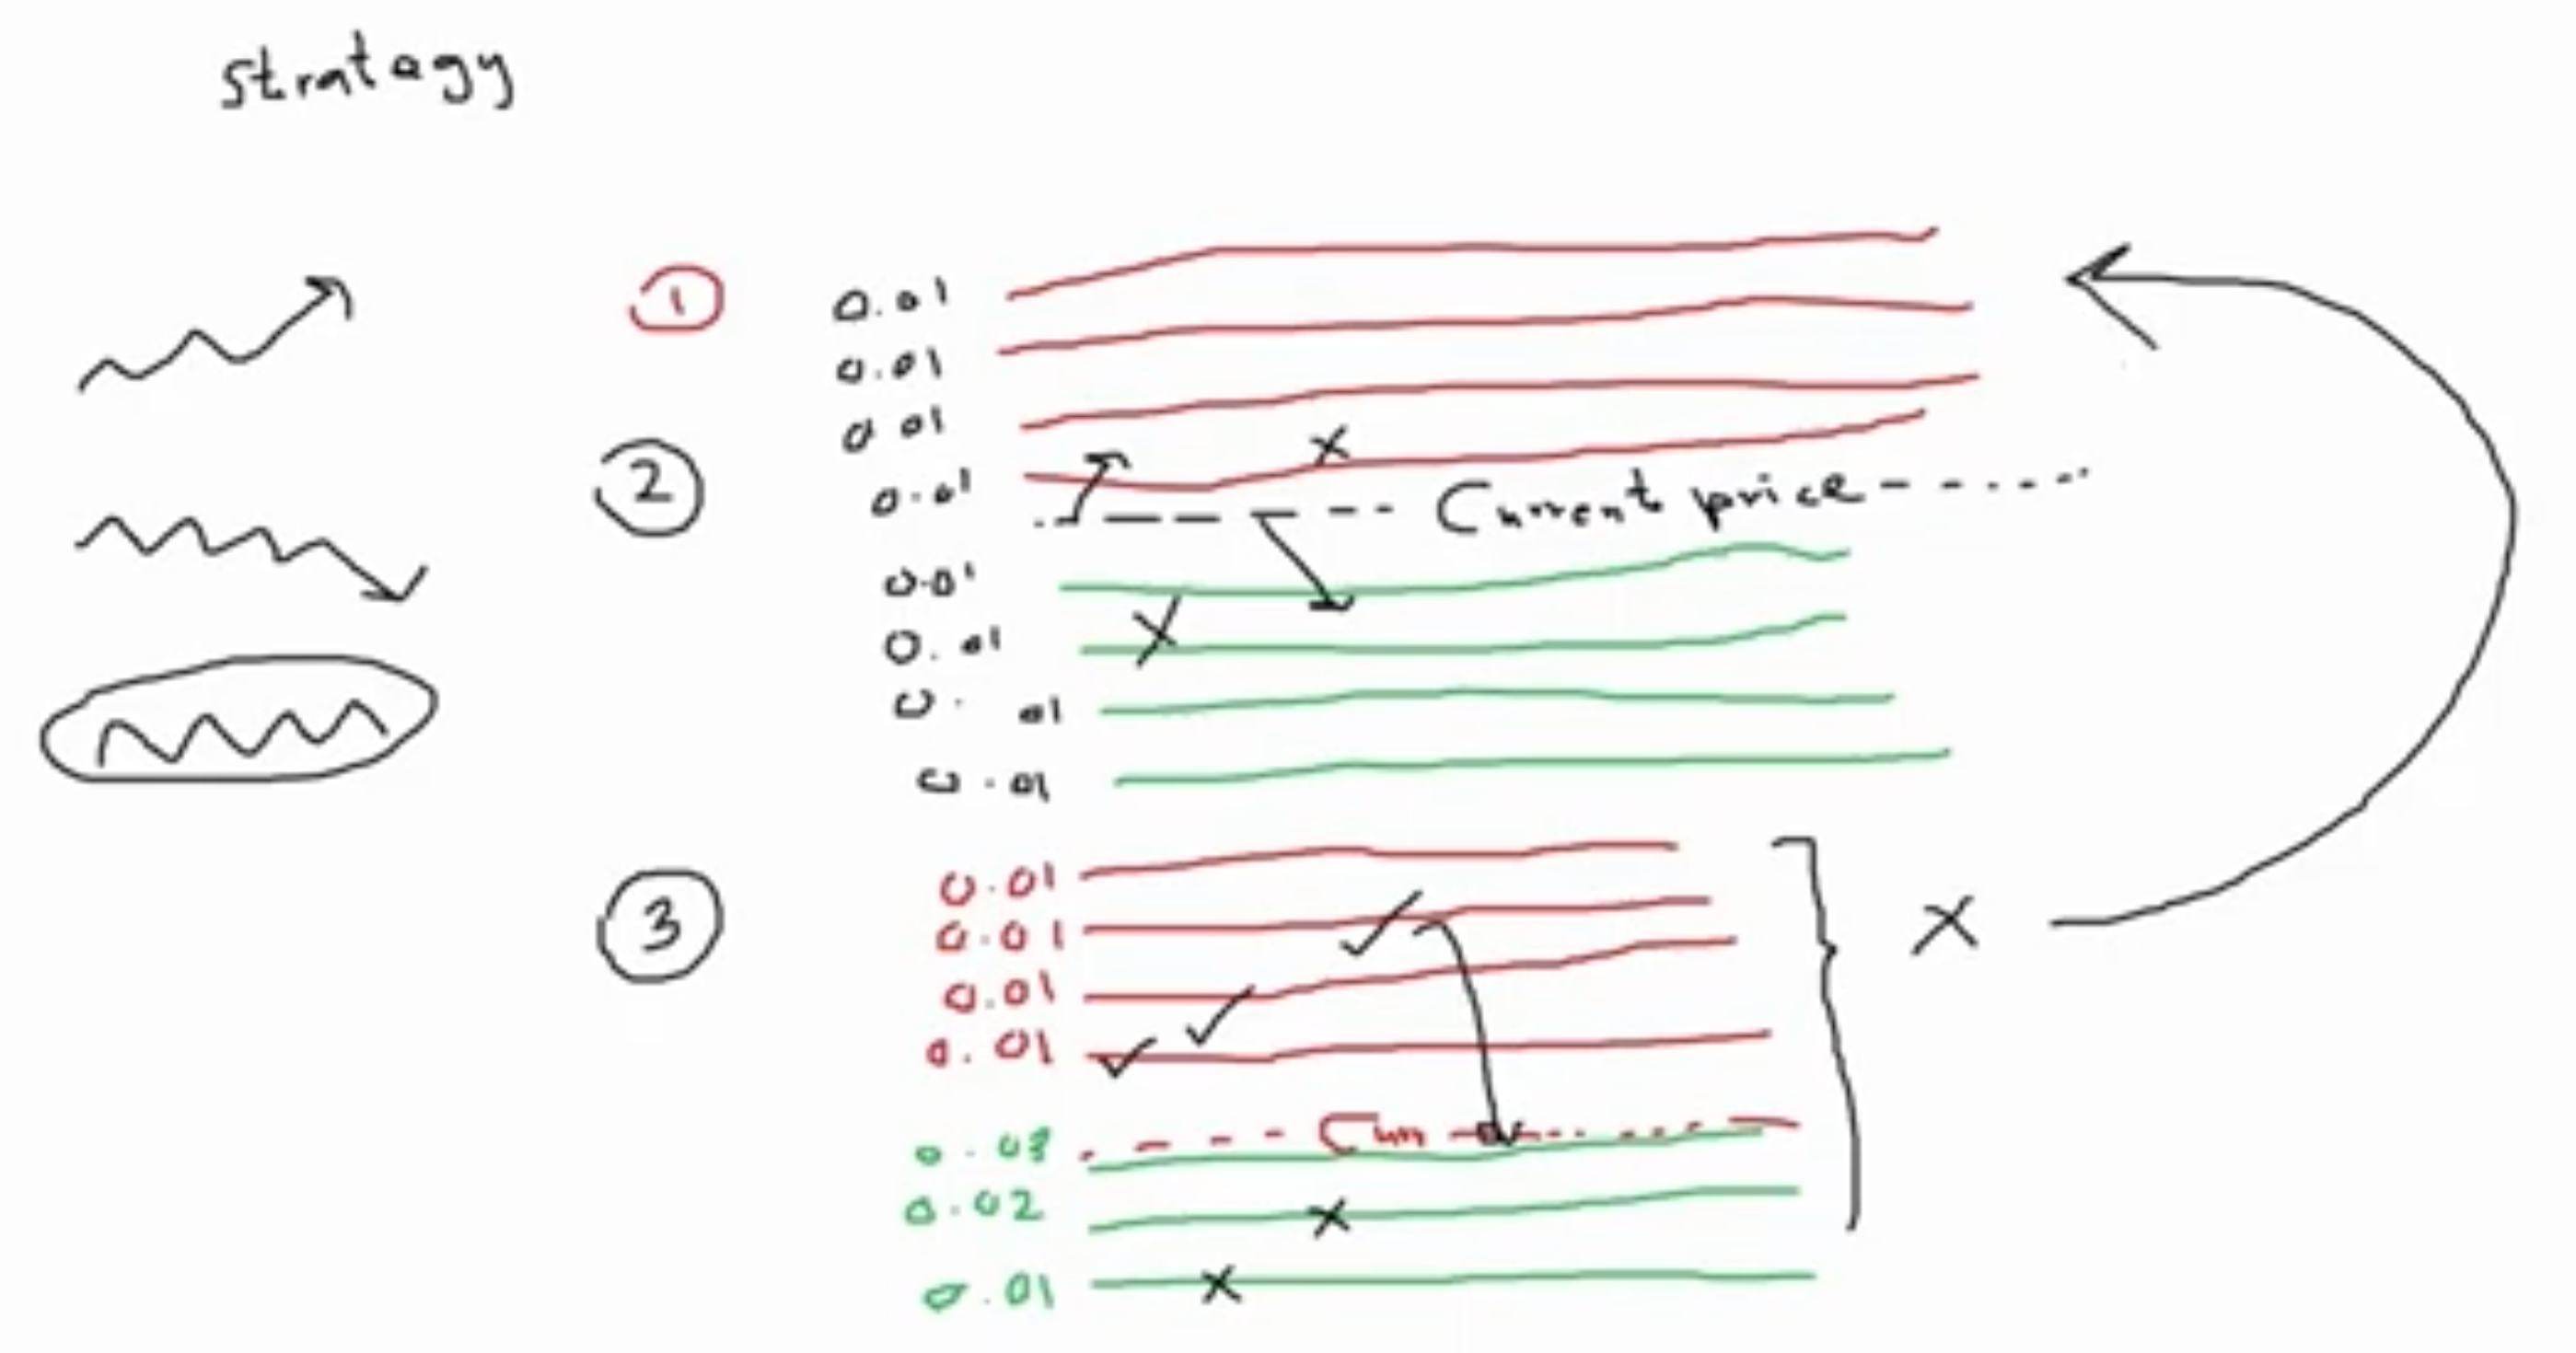 stratagy
1
0.01
0.01
0.01
2
0.01
Current price
0.01
0.01
0.01
0.01
3
0.01
0.01
0.01
0.01
Curr
0.02
0.01